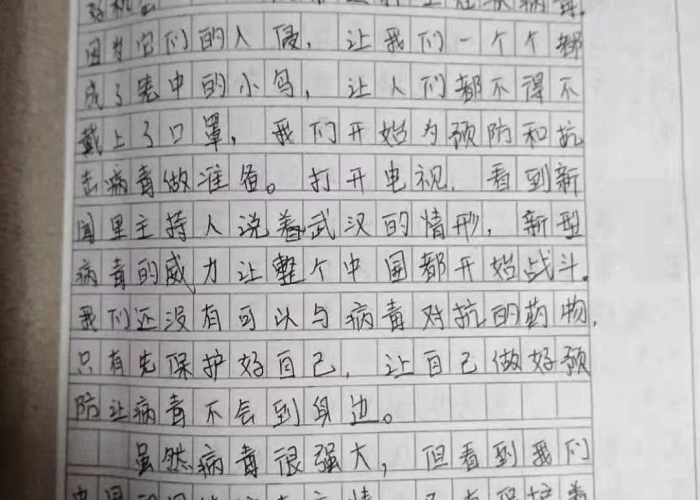 因为它们的入侵，让我们一个个都
成了笼中的小鸟，让人们都不得不
戴上了口罩，我们开始为预防和抗
击病毒做准备。打开电视，看到新
闻里主持人说着武汉的情形，新型
病毒的威力让整个中国都开始战斗。
我们还没有可以与病毒对抗的药物，
只有先保护好自己，让自己做好预
防让病毒不会到身边。
虽然病毒很强大，但看到我们